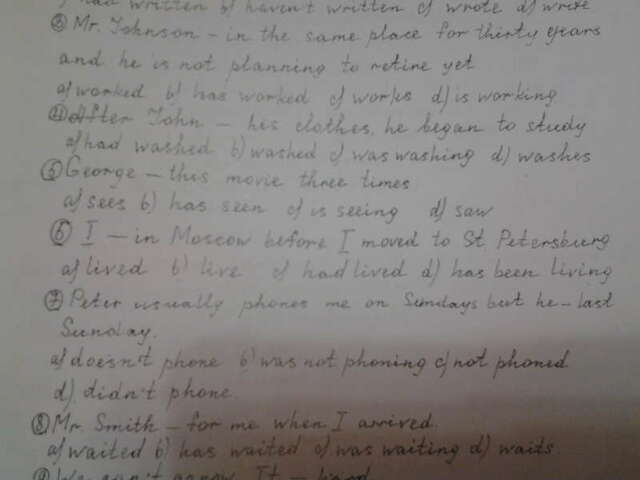 had written b) haven't written c) wrote d) write
③ Mr. Johnson – in the same place for thirty years
and he is not planning to retire yet
a) worked b) has worked c) works d) is working
④ After John – his clothes, he began to study
a) had washed b) washed c) was washing d) washes
⑤ George – this movie three times
a) sees b) has seen c) is seeing d) saw
⑥ I – in Moscow before I moved to St. Petersburg
a) lived b) live c) had lived d) has been living
⑦ Peter usually phones me on Sundays but he – last
Sunday.
a) doesn't phone b) was not phoning c) not phoned
d) didn't phone.
⑧ Mr. Smith – for me when I arrived.
a) waited b) has waited c) was waiting d) waits
We can't It –